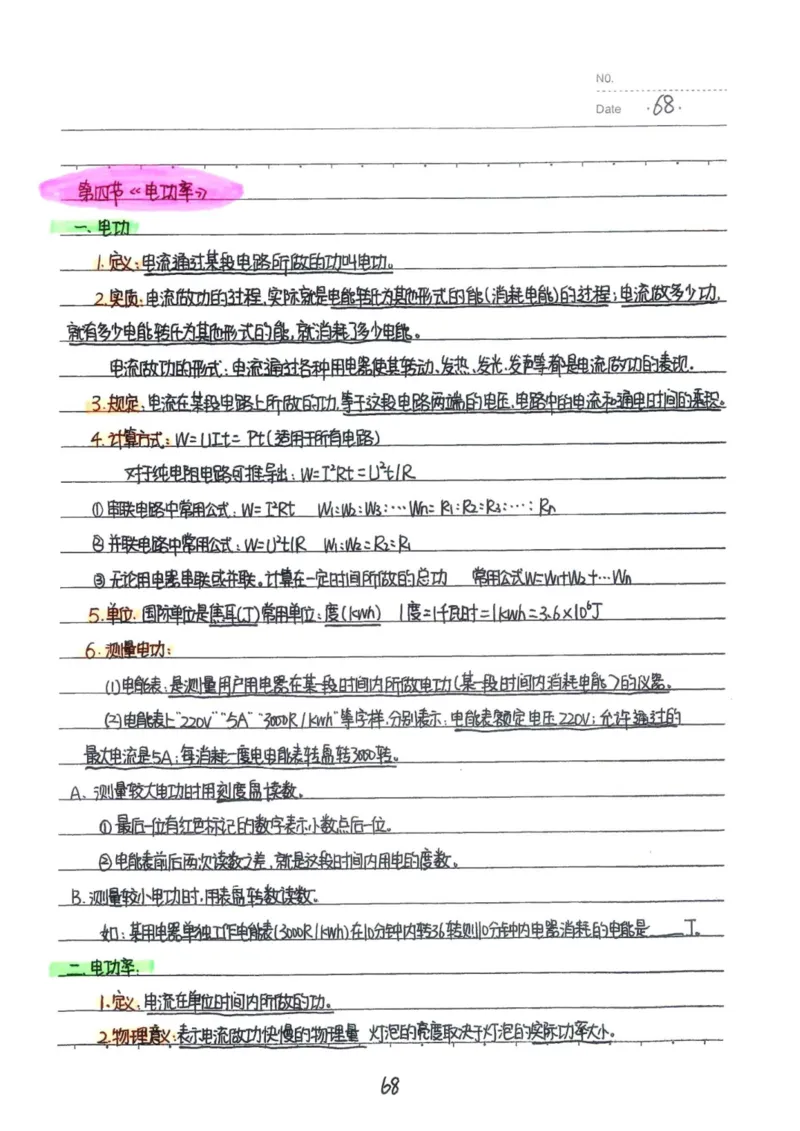 NO.
Date ·68·
第四节《电功率》
一、电功
1.定义:电流通过某段电路所做的功叫电功。
2.实质:电流做功的过程,实际就是电能转化为其他形式的能(消耗电能)的过程;电流做多少功,
就有多少电能转化为其他形式的能,就消耗了多少电能。
电流做功的形式:电流通过各种用电器使其转动、发热、发光、发声等都是电流做功的表现.
3.规定:电流在某段电路上所做的功,等于这段电路两端的电压、电路中的电流和通电时间的乘积。
4.计算方式:W=UIt=Pt(适用于所有电路)
对于纯电阻电路可推导出:W=I²Rt=U²t/R
①串联电路中常用公式:W=I²Rt W₁:W₂:W₃:…Wn=R₁:R₂:R₃:…:Rn
②并联电路中常用公式:W=U²t/R W₁:W₂=R₂:R₁
③无论用电器串联或并联。计算在一定时间所做的总功 常用公式W=W₁+W₂+…Wn
5.单位:国际单位是焦耳(J)常用单位:度(kwh) 1度=1千瓦时=1kwh=3.6×10⁶J
6.测量电功:
(1)电能表:是测量用户用电器在某段时间内所做电功(某一段时间内消耗电能)的仪器。
(2)电能表上"220V""5A""3000R/kwh"等字样,分别表示:电能表额定电压220V;允许通过的
最大电流是5A;每消耗一度电电能表转盘转3000转。
A、测量较大电功时用刻度盘读数。
①最后一位有红色标记的数字表示小数点后一位。
②电能表前后两次读数之差,就是这段时间内用电的度数。
B.测量较小电功时,用表盘转数读数。
如:某用电器单独工作电能表(3000R/kwh)在10分钟内转36转则10分钟内电器消耗的电能是____J。
二、电功率:
1.定义:电流在单位时间内所做的功。
2.物理意义:表示电流做功快慢的物理量 灯泡的亮度取决于灯泡的实际功率大小。
68